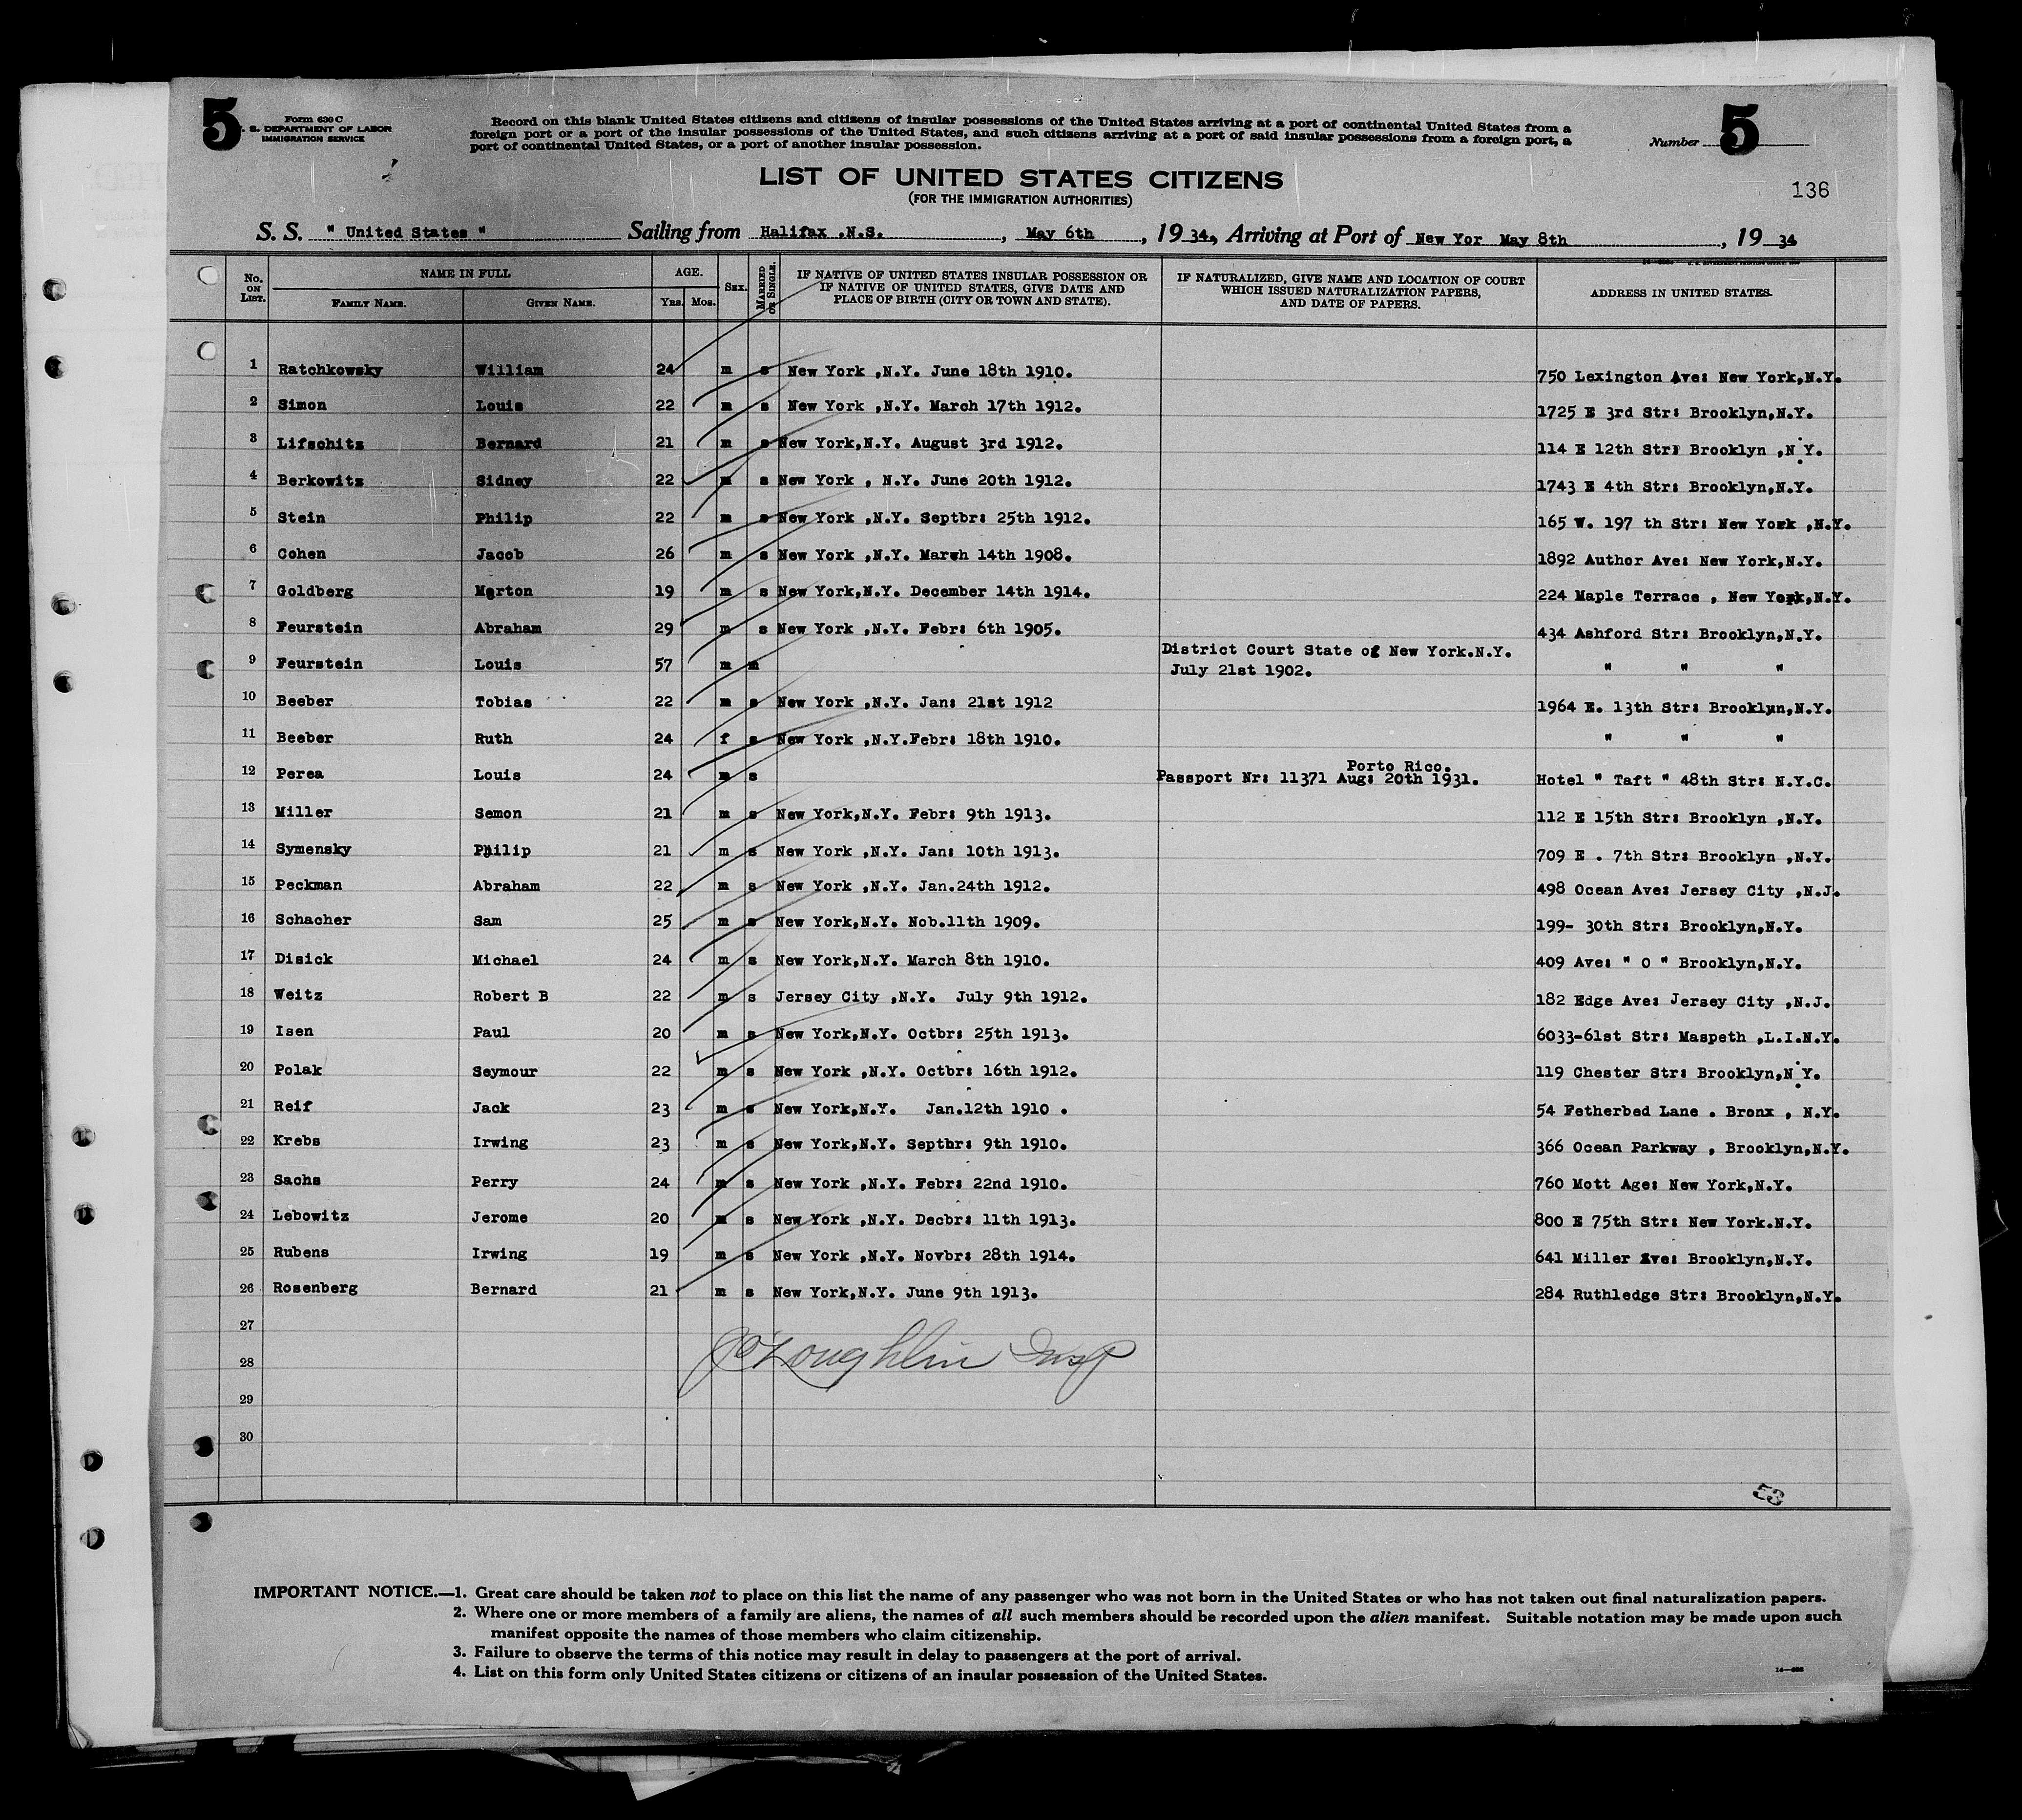 5
Form 630 C
U. S. DEPARTMENT OF LABOR
IMMIGRATION SERVICE
Record on this blank United States citizens and citizens of insular possessions of the United States arriving at a port of continental United States from a
foreign port or a port of the insular possessions of the United States, and such citizens arriving at a port of said insular possessions from a foreign port, a
port of continental United States, or a port of another insular possession.
Number 5
LIST OF UNITED STATES CITIZENS
(FOR THE IMMIGRATION AUTHORITIES)
136
S. S. " United States " Sailing from Halifax .N.S. , May 6th , 19 34, Arriving at Port of New Yor May 8th , 19 34
No. ON LIST. NAME IN FULL FAMILY NAME. GIVEN NAME. AGE. YRS. MOS. SEX. MARRIED OR SINGLE. IF NATIVE OF UNITED STATES INSULAR POSSESSION OR IF NATIVE OF UNITED STATES, GIVE DATE AND PLACE OF BIRTH (CITY OR TOWN AND STATE). IF NATURALIZED, GIVE NAME AND LOCATION OF COURT WHICH ISSUED NATURALIZATION PAPERS, AND DATE OF PAPERS. ADDRESS IN UNITED STATES.
1 Ratchkowsky William 24 m s New York ,N.Y. June 18th 1910. 750 Lexington Ave: New York,N.Y.
2 Simon Louis 22 m s New York ,N.Y. March 17th 1912. 1725 E 3rd Str: Brooklyn,N.Y.
3 Lifschitz Bernard 21 m s New York,N.Y. August 3rd 1912. 114 E 12th Str: Brooklyn ,N.Y.
4 Berkowitz Sidney 22 m s New York , N.Y. June 20th 1912. 1743 E 4th Str: Brooklyn,N.Y.
5 Stein Philip 22 m s New York ,N.Y. Septbr: 25th 1912. 165 W. 197 th Str: New York ,N.Y.
6 Cohen Jacob 26 m s New York ,N.Y. March 14th 1908. 1892 Author Ave: New York,N.Y.
7 Goldberg Merton 19 m s New York,N.Y. December 14th 1914. 224 Maple Terrace , New York,N.Y.
8 Feurstein Abraham 29 m s New York ,N.Y. Febr: 6th 1905. 434 Ashford Str: Brooklyn,N.Y.
9 Feurstein Louis 57 m m District Court State of New York.N.Y. July 21st 1902. " " "
10 Beeber Tobias 22 m s New York ,N.Y. Jan: 21st 1912 1964 E. 13th Str: Brooklyn,N.Y.
11 Beeber Ruth 24 f s New York ,N.Y.Febr: 18th 1910. " " "
12 Perea Louis 24 m s Porto Rico. Passport Nr: 11371 Aug: 20th 1931. Hotel " Taft " 48th Str: N.Y.C.
13 Miller Semon 21 m s New York,N.Y. Febr: 9th 1913. 112 E 15th Str: Brooklyn ,N.Y.
14 Symensky Philip 21 m s New York ,N.Y. Jan: 10th 1913. 709 E . 7th Str: Brooklyn ,N.Y.
15 Peckman Abraham 22 m s New York ,N.Y. Jan.24th 1912. 498 Ocean Ave: Jersey City ,N.J.
16 Schacher Sam 25 m s New York,N.Y. Nob.11th 1909. 199- 30th Str: Brooklyn,N.Y.
17 Disick Michael 24 m s New York,N.Y. March 8th 1910. 409 Ave: " O " Brooklyn,N.Y.
18 Weitz Robert B 22 m s Jersey City ,N.Y. July 9th 1912. 182 Edge Ave: Jersey City ,N.J.
19 Isen Paul 20 m s New York,N.Y. Octbr: 25th 1913. 6033-61st Str: Maspeth ,L.I.N.Y.
20 Polak Seymour 22 m s New York ,N.Y. Octbr: 16th 1912. 119 Chester Str: Brooklyn,N.Y.
21 Reif Jack 23 m s New York,N.Y. Jan.12th 1910 . 54 Fetherbed Lane . Bronx , N.Y.
22 Krebs Irwing 23 m s New York,N.Y. Septbr: 9th 1910. 366 Ocean Parkway , Brooklyn,N.Y.
23 Sachs Perry 24 m s New York ,N.Y. Febr: 22nd 1910. 760 Mott Age: New York,N.Y.
24 Lebowitz Jerome 20 m s New York ,N.Y. Decbr: 11th 1913. 800 E 75th Str: New York.N.Y.
25 Rubens Irwing 19 m s New York ,N.Y. Novbr: 28th 1914. 641 Miller Ave: Brooklyn,N.Y.
26 Rosenberg Bernard 21 m s New York,N.Y. June 9th 1913. 284 Ruthledge Str: Brooklyn,N.Y.
27
28 J O'Loughlin Insp
29
30
53
IMPORTANT NOTICE.—1. Great care should be taken not to place on this list the name of any passenger who was not born in the United States or who has not taken out final naturalization papers.
2. Where one or more members of a family are aliens, the names of all such members should be recorded upon the alien manifest. Suitable notation may be made upon such
manifest opposite the names of those members who claim citizenship.
3. Failure to observe the terms of this notice may result in delay to passengers at the port of arrival.
4. List on this form only United States citizens or citizens of an insular possession of the United States.